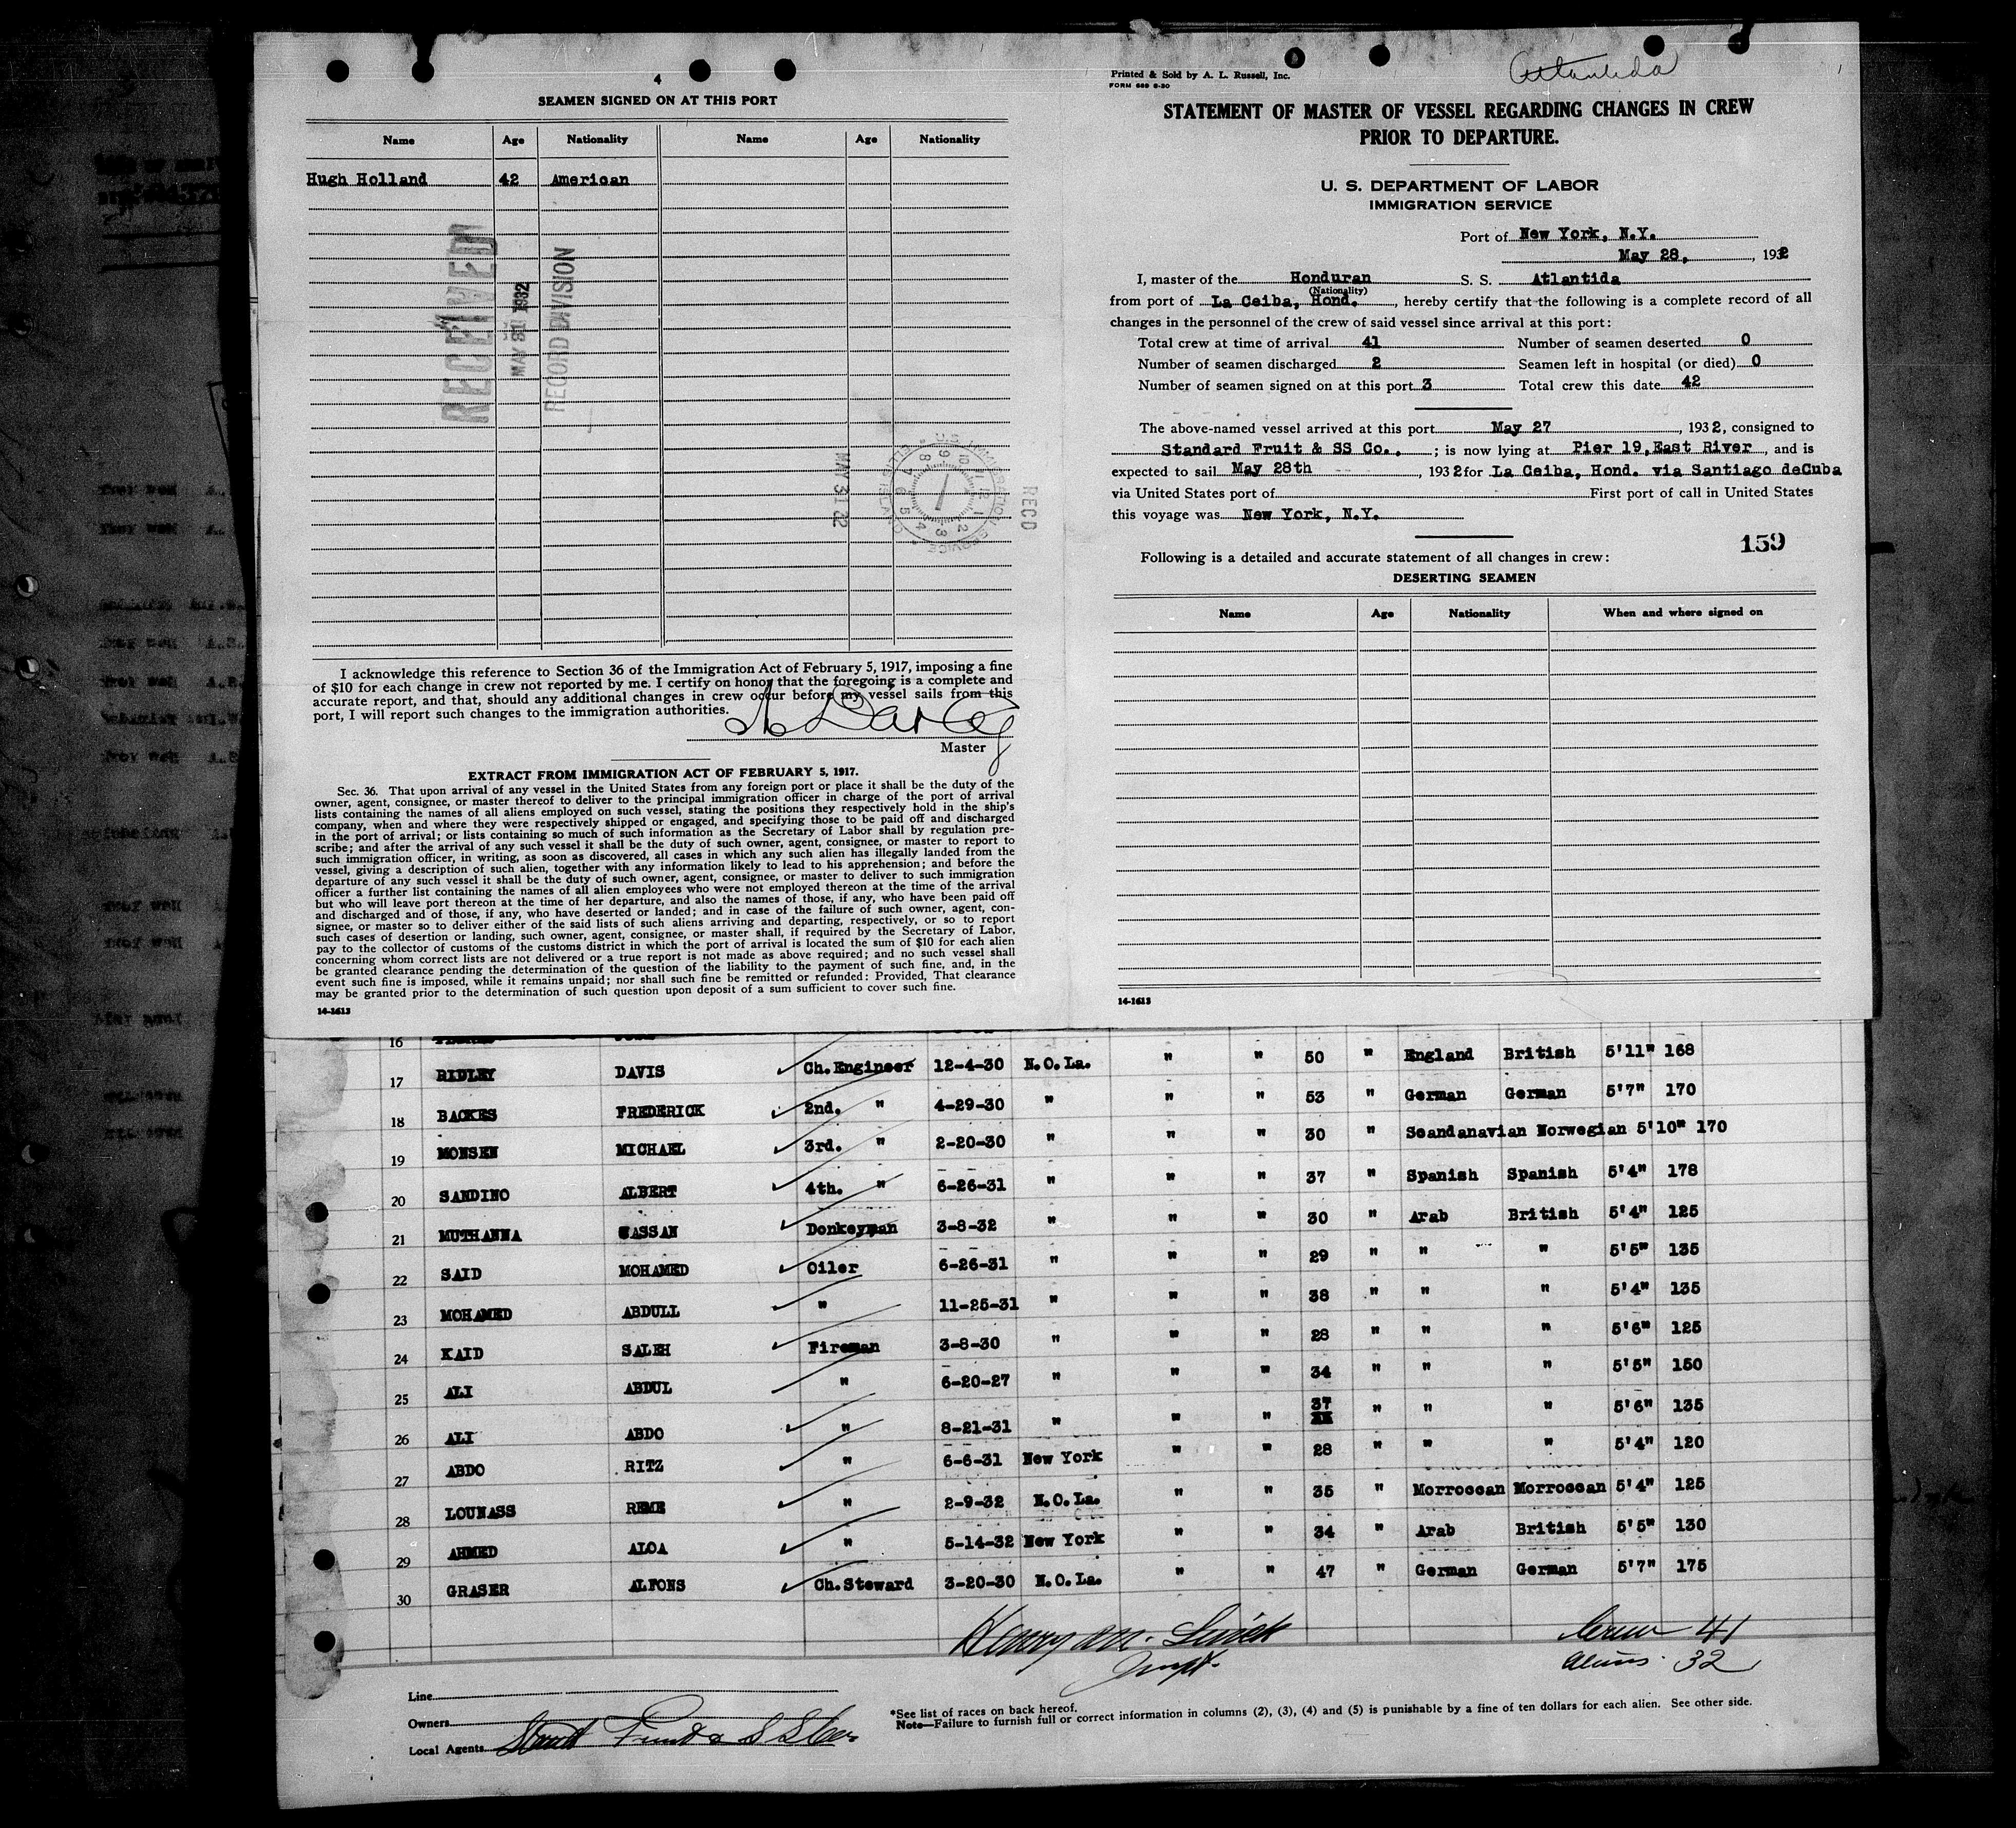 4
SEAMEN SIGNED ON AT THIS PORT
Name Age Nationality Name Age Nationality
Hugh Holland 42 American
RECEIVED
MAY 31 1932
RECORD DIVISION
MAY 31 32
RECD
I acknowledge this reference to Section 36 of the Immigration Act of February 5, 1917, imposing a fine
of $10 for each change in crew not reported by me. I certify on honor that the foregoing is a complete and
accurate report, and that, should any additional changes in crew occur before my vessel sails from this
port, I will report such changes to the immigration authorities.
Master
EXTRACT FROM IMMIGRATION ACT OF FEBRUARY 5, 1917.
Sec. 36. That upon arrival of any vessel in the United States from any foreign port or place it shall be the duty of the
owner, agent, consignee, or master thereof to deliver to the principal immigration officer in charge of the port of arrival
lists containing the names of all aliens employed on such vessel, stating the positions they respectively hold in the ship's
company, when and where they were respectively shipped or engaged, and specifying those to be paid off and discharged
in the port of arrival; or lists containing so much of such information as the Secretary of Labor shall by regulation pre-
scribe; and after the arrival of any such vessel it shall be the duty of such owner, agent, consignee, or master to report to
such immigration officer, in writing, as soon as discovered, all cases in which any such alien has illegally landed from the
vessel, giving a description of such alien, together with any information likely to lead to his apprehension; and before the
departure of any such vessel it shall be the duty of such owner, agent, consignee, or master to deliver to such immigration
officer a further list containing the names of all alien employees who were not employed thereon at the time of the arrival
but who will leave port thereon at the time of her departure, and also the names of those, if any, who have been paid off
and discharged and of those, if any, who have deserted or landed; and in case of the failure of such owner, agent, con-
signee, or master so to deliver either of the said lists of such aliens arriving and departing, respectively, or so to report
such cases of desertion or landing, such owner, agent, consignee, or master shall, if required by the Secretary of Labor,
pay to the collector of customs of the customs district in which the port of arrival is located the sum of $10 for each alien
concerning whom correct lists are not delivered or a true report is not made as above required; and no such vessel shall
be granted clearance pending the determination of the question of the liability to the payment of such fine, and, in the
event such fine is imposed, while it remains unpaid; nor shall such fine be remitted or refunded: Provided, That clearance
may be granted prior to the determination of such question upon deposit of a sum sufficient to cover such fine.
14-1613
Atlantida
Printed & Sold by A. L. Russell, Inc.
FORM 689 8-30
STATEMENT OF MASTER OF VESSEL REGARDING CHANGES IN CREW
PRIOR TO DEPARTURE.
U. S. DEPARTMENT OF LABOR
IMMIGRATION SERVICE
Port of New York, N.Y.
May 28, 1932
I, master of the Honduran S. S. Atlantida
(Nationality)
from port of La Ceiba, Hond., hereby certify that the following is a complete record of all
changes in the personnel of the crew of said vessel since arrival at this port:
Total crew at time of arrival 41 Number of seamen deserted 0
Number of seamen discharged 2 Seamen left in hospital (or died) 0
Number of seamen signed on at this port 3 Total crew this date 42
The above-named vessel arrived at this port May 27, 1932, consigned to
Standard Fruit & SS Co., ; is now lying at Pier 19, East River, and is
expected to sail May 28th, 1932 for La Ceiba, Hond. via Santiago deCuba
via United States port of First port of call in United States
this voyage was New York, N.Y.
159
Following is a detailed and accurate statement of all changes in crew:
DESERTING SEAMEN
Name Age Nationality When and where signed on
14-1613
16
17 RIDLEY DAVIS Ch. Engineer 12-4-30 N.O.La. " " 50 " England British 5'11" 168
18 BACKES FREDERICK 2nd. " 4-29-30 " " " 53 " German German 5'7" 170
19 MONSEN MICHAEL 3rd. " 2-20-30 " " " 30 " Scandanavian Norwegian 5'10" 170
20 SANDINO ALBERT 4th. " 6-26-31 " " " 37 " Spanish Spanish 5'4" 178
21 MUTHANNA HASSAN Donkeyman 3-8-32 " " " 30 " Arab British 5'4" 125
22 SAID MOHAMED Oiler 6-26-31 " " " 29 " " " 5'5" 135
23 MOHAMED ABDULL " 11-25-31 " " " 38 " " " 5'4" 135
24 KAID SALEH Fireman 3-8-30 " " " 28 " " " 5'6" 125
25 ALI ABDUL " 6-20-27 " " " 34 " " " 5'5" 150
26 ALI ABDO " 8-21-31 " " " 37 " " " 5'6" 135
27 ABDO RITZ " 6-6-31 New York " " 28 " " " 5'4" 120
28 LOUNASS REME " 2-9-32 N.O.La. " " 35 " Morrocan Morrocan 5'4" 125
29 AHMED ALOA " 5-14-32 New York " " 34 " Arab British 5'5" 130
30 GRASER ALFONS Ch. Steward 3-20-30 N.O.La. " " 47 " German German 5'7" 175
Crew 41
Aliens 32
Line
Owners
Local Agents
*See list of races on back hereof.
Note—Failure to furnish full or correct information in columns (2), (3), (4) and (5) is punishable by a fine of ten dollars for each alien. See other side.